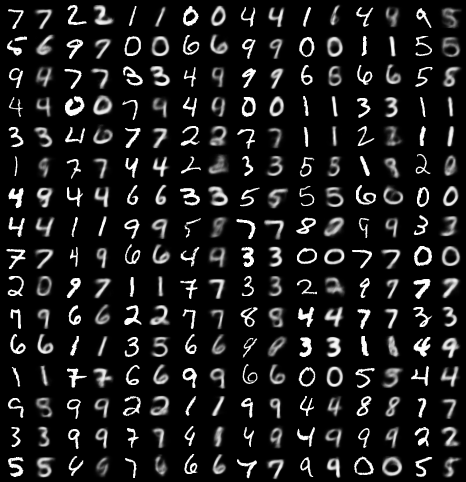 7 7 2 2 1 1 0 0 4 4 1 6 4 9 9
5 6 9 7 0 0 6 6 9 9 0 0 1 1 5 5
9 4 7 7 3 3 4 9 9 9 6 6 6 6 5 8
4 9 0 0 7 9 4 9 0 0 1 1 3 3 1 1
3 3 4 6 7 7 2 2 7 7 1 1 2 2 1 1
1 9 7 7 4 4 2 3 3 5 5 1 8 2 0
4 9 4 4 6 6 3 3 5 5 5 5 6 0 0 0
4 4 1 1 9 9 5 8 7 7 8 0 9 9 3 3
7 7 4 9 6 6 4 9 3 3 0 0 7 7 0 0
2 0 9 7 1 1 7 7 3 3 2 2 9 7 7 7
7 9 6 6 2 2 7 7 8 8 4 4 7 7 3 3
6 6 1 1 3 5 6 6 9 8 3 3 1 1 4 9
1 1 7 7 6 6 9 9 6 6 0 0 5 5 4 4
9 8 9 9 2 2 1 1 9 9 4 4 8 8 7 7
3 3 9 9 7 7 4 4 9 4 9 9 9 2 2
5 5 4 9 7 6 6 6 7 7 9 9 0 0 5 5